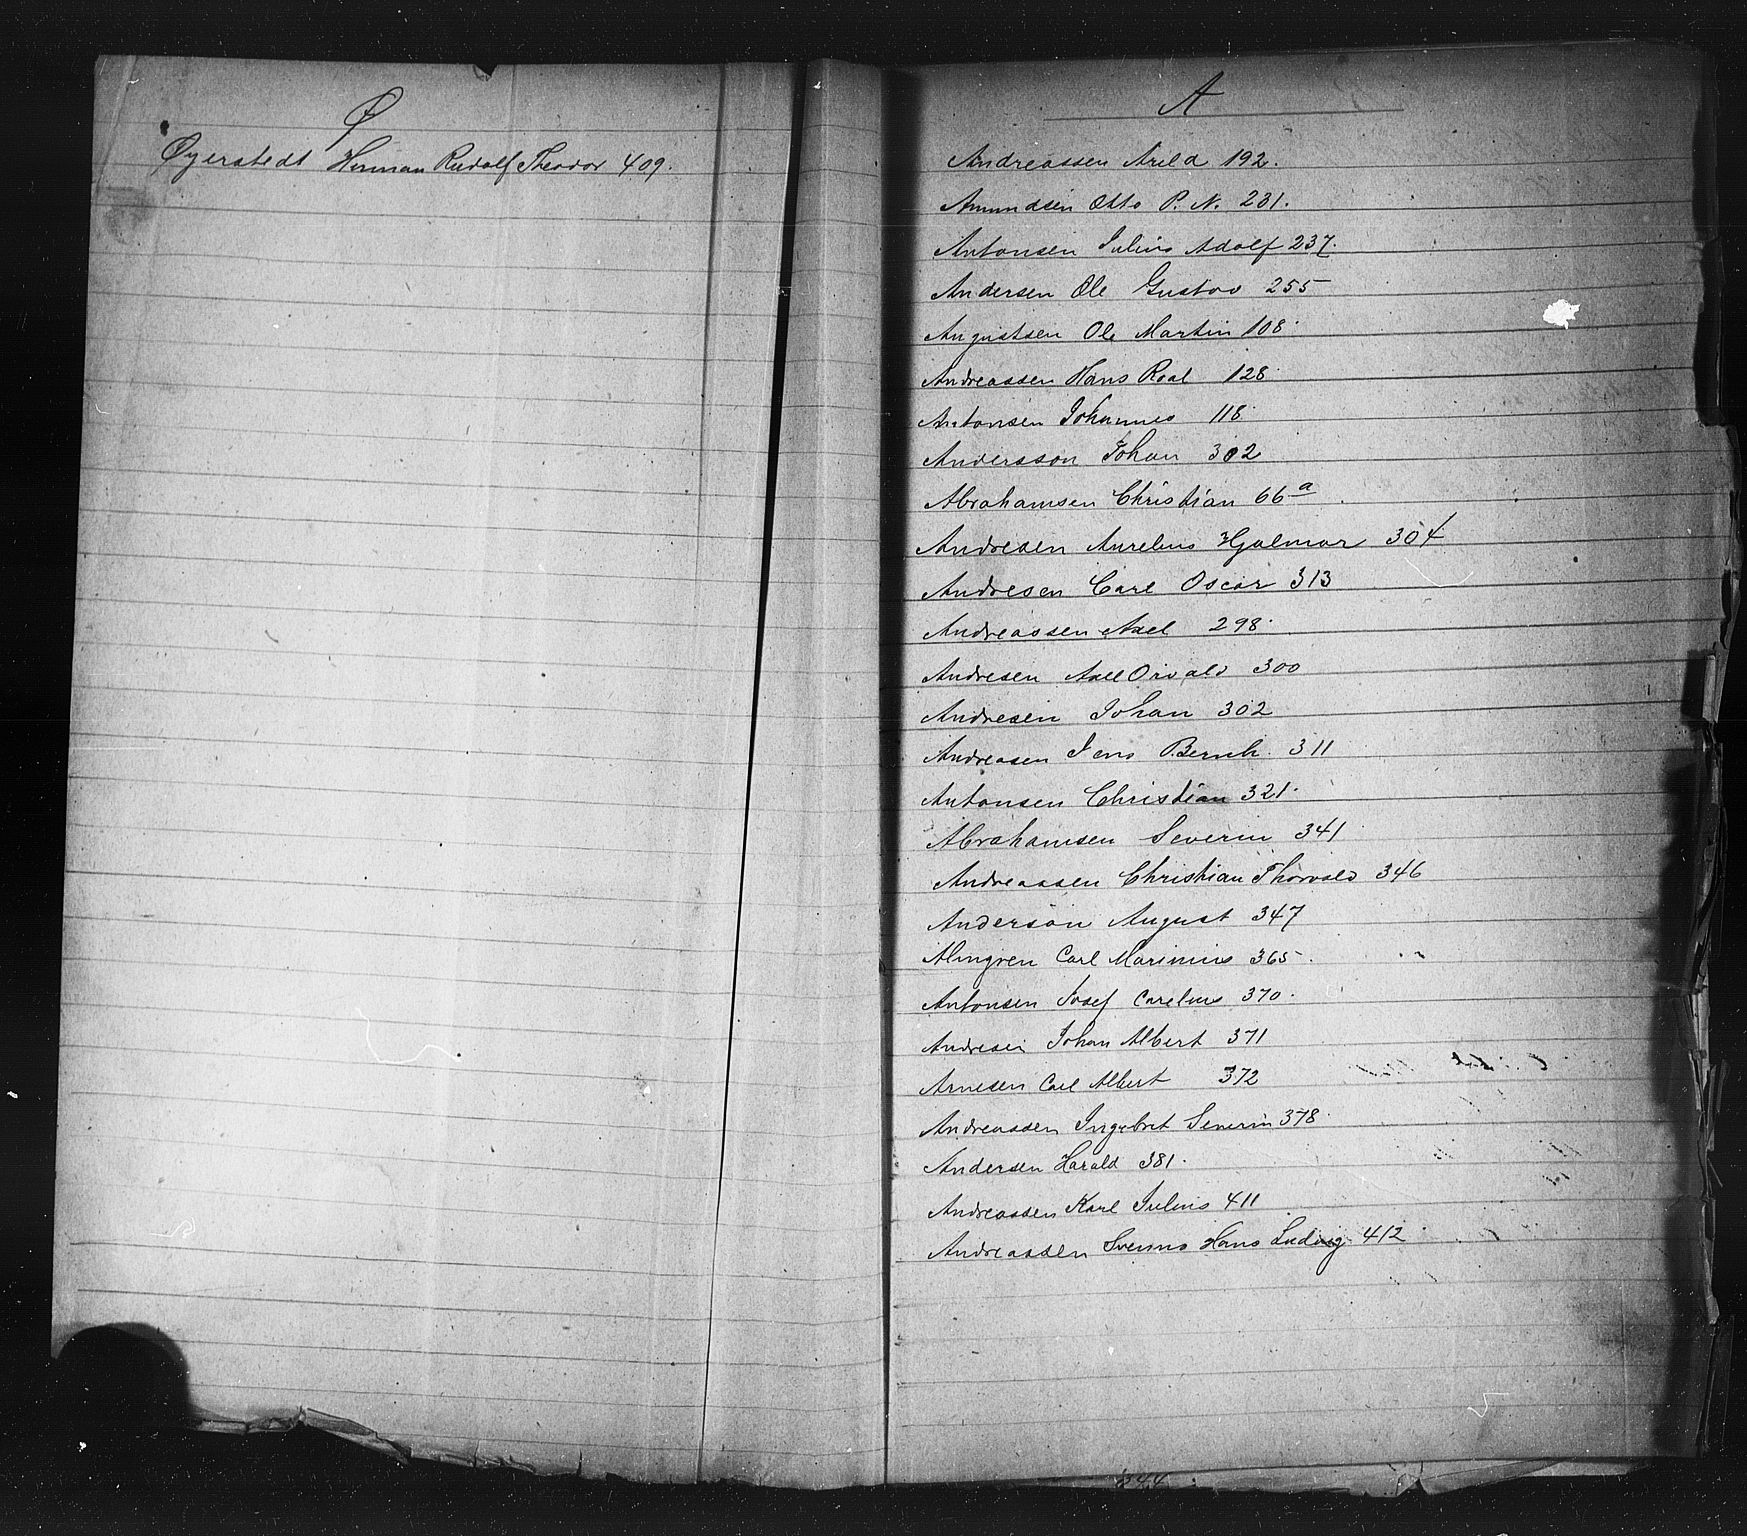 Ø
Øyerstedt Herman Rudolf Theodor 409.
A
Andreassen Areld 192.
Amundsen Otto P. N. 231.
Antonsen Julius Adolf 237.
Andersen Ole Gustav 255
Augustsen Ole Martin 108.
Andreassen Hans Roal 128.
Antonsen Johannes 118.
Andersson Johan 302
Abrahamsen Christian 66 a
Andresen Aurelius Hjalmar 304
Andresen Carl Oscar 313
Andreassen Axel 298.
Andresen Axel Orvald 300
Andresen Johan 302
Andreasen Jens Bernh. 311
Antonsen Christian 321.
Abrahamsen Severin 341
Andreassen Christian Thorvald 346
Anderson August 347
Almgren Carl Marinius 365.
Antonsen Josef Carelius 370.
Andresen Johan Albert 371
Arnesen Carl Albert 372
Andreassen Ingebret Severin 378.
Andersen Harald 381.
Andreassen Karl Julius 411
Andreassen Hans Ludvig 412
344